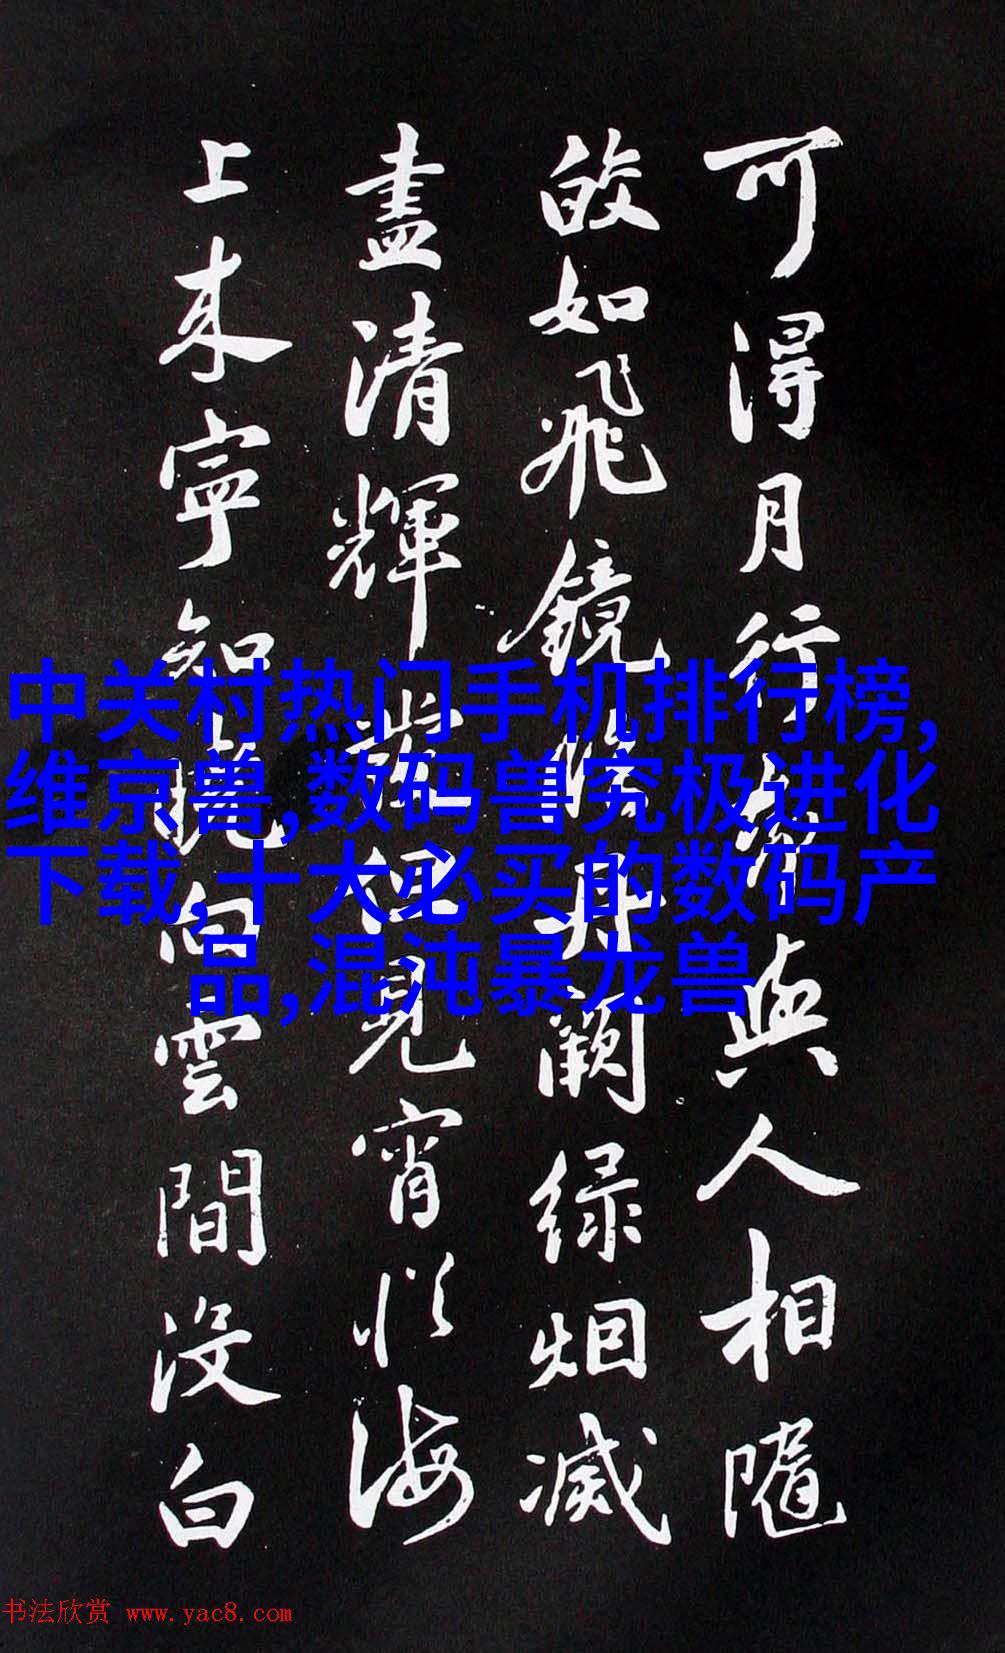 可得月行卻與人相隨
皎如飛鏡臨丹闕绿烟滅
盡清輝發但見宵從海
上来寧知曉向雲間没白
中关村热门手机排行榜,
维京兽,数码兽究极进化
下载,十大必买的数码产
品,混沌暴龙兽
书法欣赏 www.yac8.com